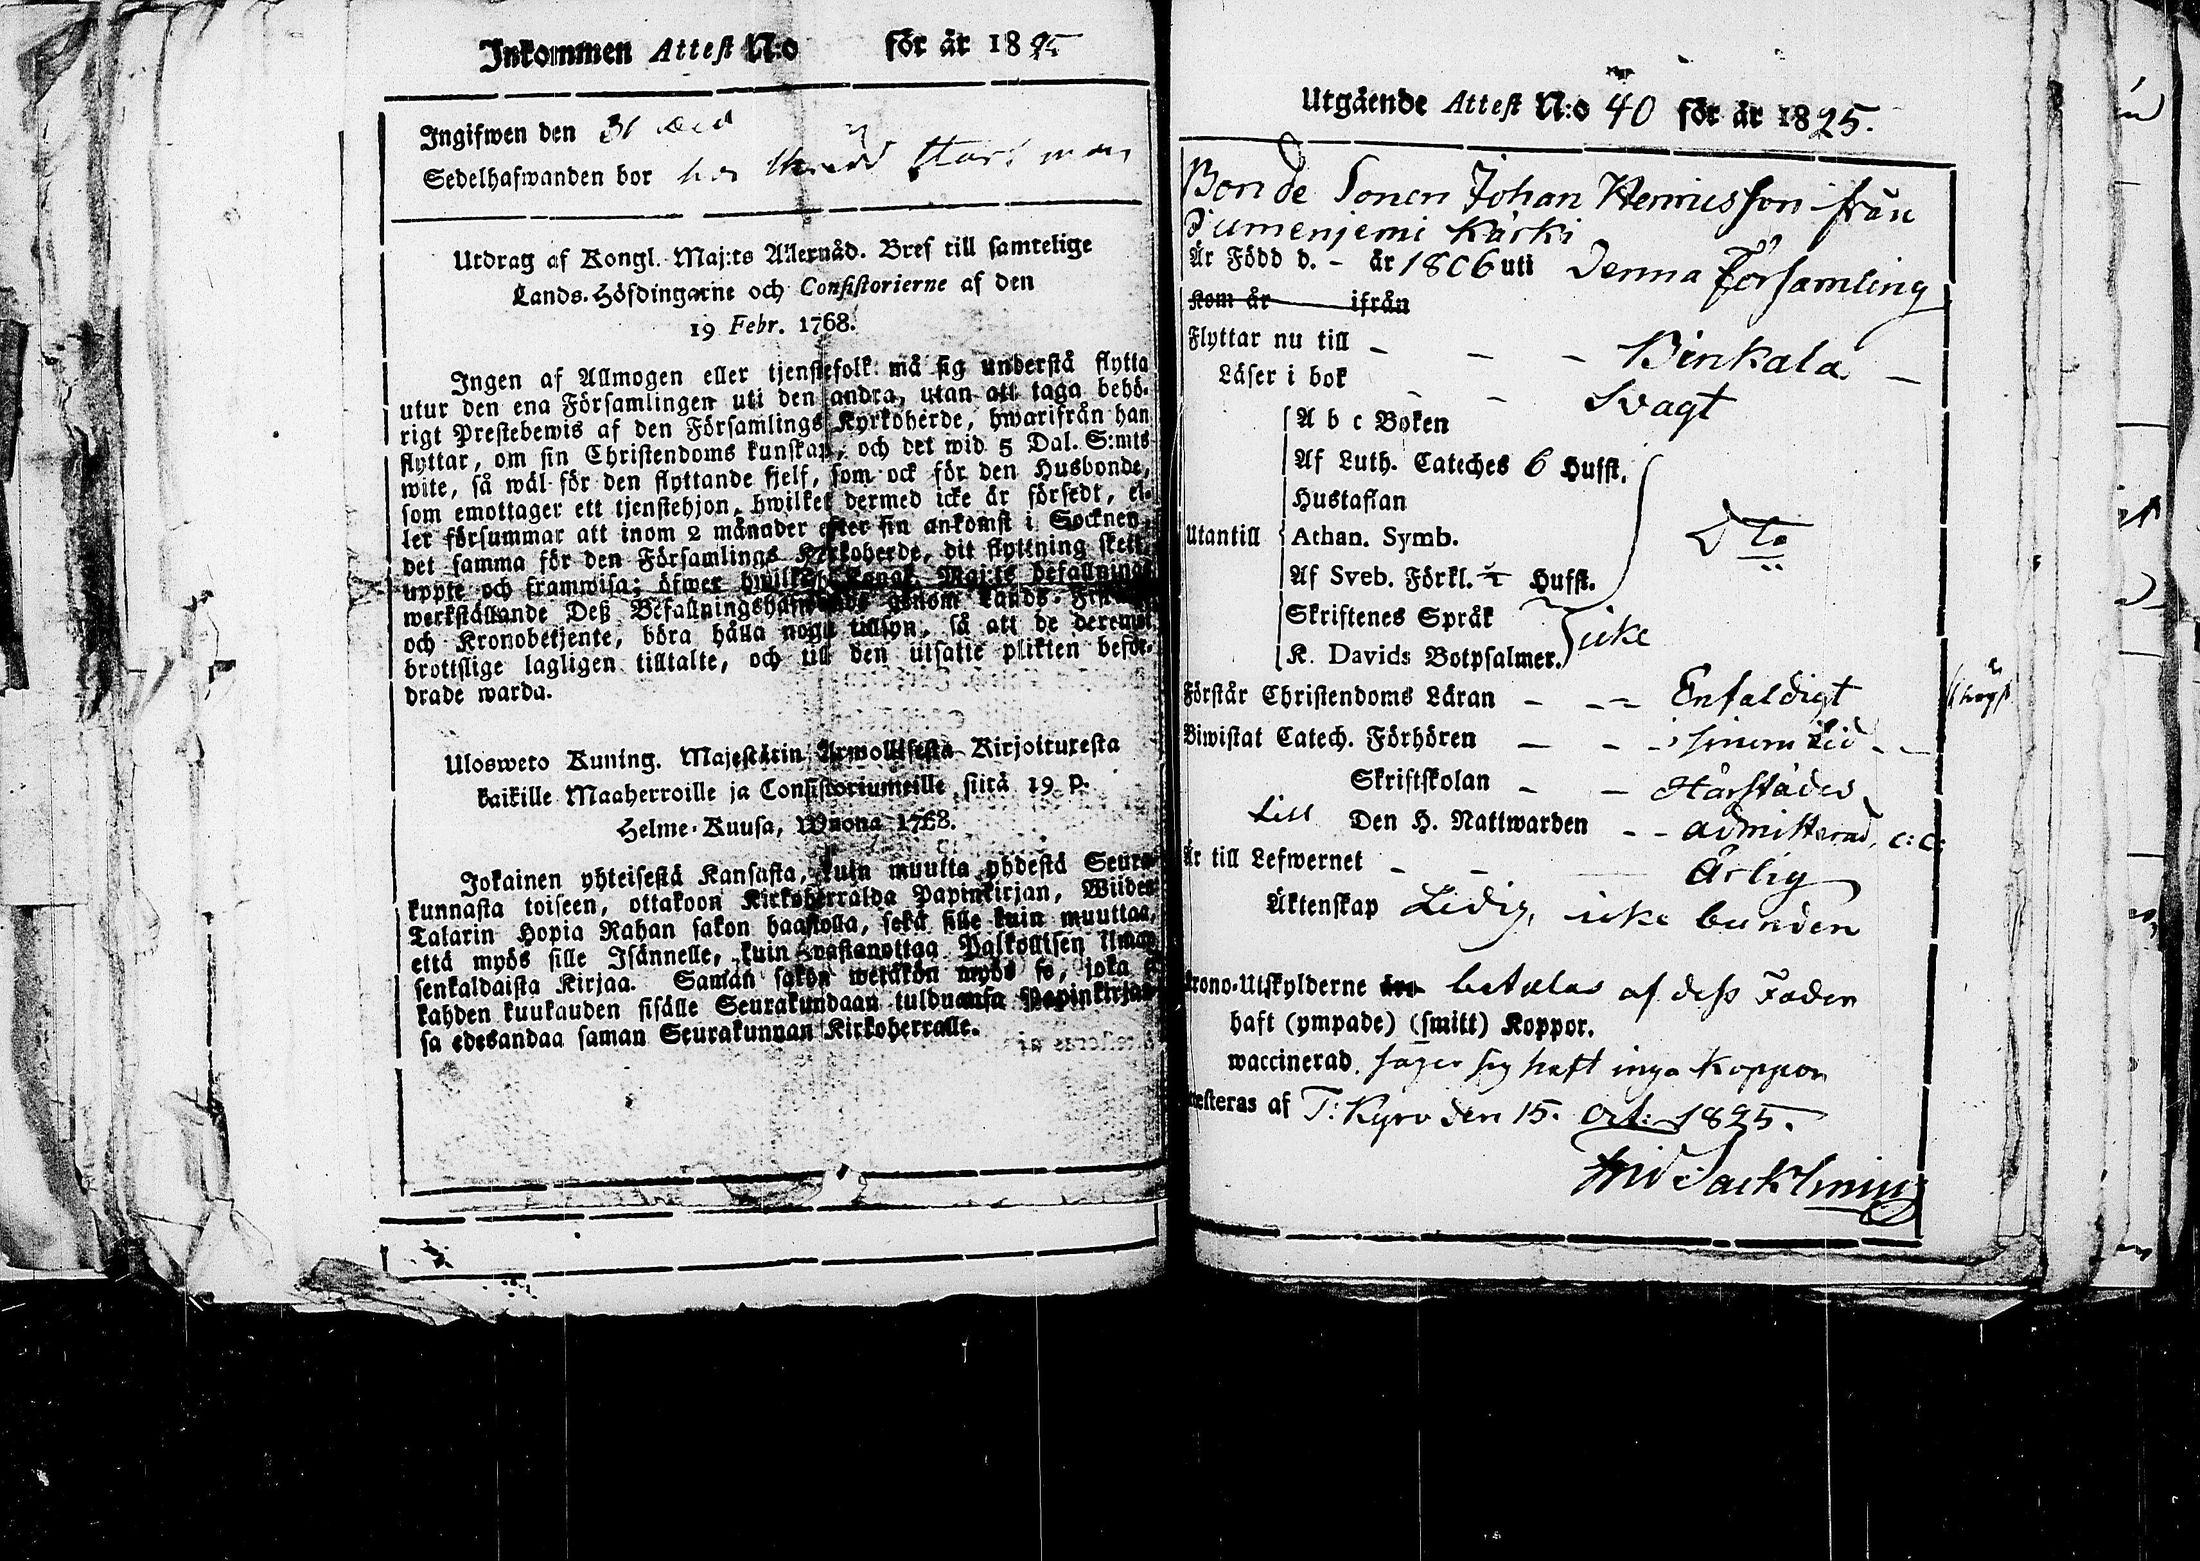 Inkommen Attest N:o för år 1825
Ingifwen den 31 Oct
Sedelhafwanden bor hos
Utdrag af Kongl. Maj:ts Allernåd. Bref till samtelige
Lands-Höfdingarne och Consistorierne af den
19 Febr. 1768.
Ingen af Allmogen eller tjenstefolk må sig understå flytta
utur den ena Församlingen uti den andra, utan att taga behö-
rigt Prestebewis af den Församlings Kyrkoherde, hwarifrån han
flyttar, om sin Christendoms kunskap, och det wid 5 Dal. S:mts
wite, så wäl för den flyttande sjelf, som ock för den Husbonde,
som emottager ett tjenstehjon, hwilket dermed icke är försedt, el-
ler försummar att inom 2 månader efter sin ankomst i Socknen
det samma för den Församlings Kyrkoherde, dit flyttning skett,
uppte och framwisa; öfwer hwilket Kongl. Maj:ts befallning
werkställande Deß Befallningshafwande genom Lands-
och Kronobetjente, böra hålla noga tillsyn, så att de deremot
brottslige lagligen tilltalte, och till den utsatte plikten beför-
drade warda.
Ulosweto Kuning. Majestätin Armollisesta Kirjoituxesta
kaikille Maaherroille ja Consistoriumeille siitä 19 p.
Helme-Kuusa, Wuona 1768.
Jokainen yhteisestä Kansasta, kuin muutta yhdestä Seura-
kunnasta toiseen, ottakoon Kirkoherralda Papinkirjan, Wiiden
Talarin Hopia Rahan sakon haastolla, sekä sille kuin muuttaa,
että myös sille Isännelle, kuin wastanottaa Palkollisen ilman
senkaldaista Kirjaa. Saman sakon wetäkön myös se, joka
kahden kuukauden sisälle Seurakundaan tulduansa Papinkirjan-
sa edesandaa saman Seurakunnan Kirkoherralle.
Utgående Attest N:o 40 för år 1825.
Bonde Sonen Johan Henricsson från
Jumenjemi Kärki
Är Född d. - år 1806 uti Denna Församling
Kom år ifrån
Flyttar nu till - - - Birkala -
Läser i bok - - Svagt
A b c Boken
Af Luth. Cateches 6 Hufst.
Hustaflan
Utantill Athan. Symb. Dto
Af Sveb. Förkl. Hufst.
Skriftenes Språk
K. Davids Botpsalmer. icke
Förstår Christendoms Läran - - Enfaldigt
Biwistat Catech. Förhören - - i sinom tid - -
Skriftskolan - - Härstädes
till Den H. Nattwarden - - admitterad,
Är till Lefwernet - - Ärlig
Äktenskap Ledig, icke bunden
Krono-Utskylderne äro betalas af dess Fader
haft (ympade) (smitt) Koppor.
waccinerad. säger sig haft inga Koppor
Attesteras af T: Kyro den 15. Oct: 1825.